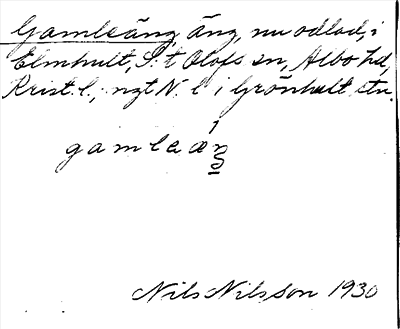 Gamleäng, äng, nu odlad, i
Elmhult, S:t Olofs sn, Albo hd,
Krist. l.; ngt N. l i Grönhult stu.
gamleæŋ
Nils Nilsson 1930